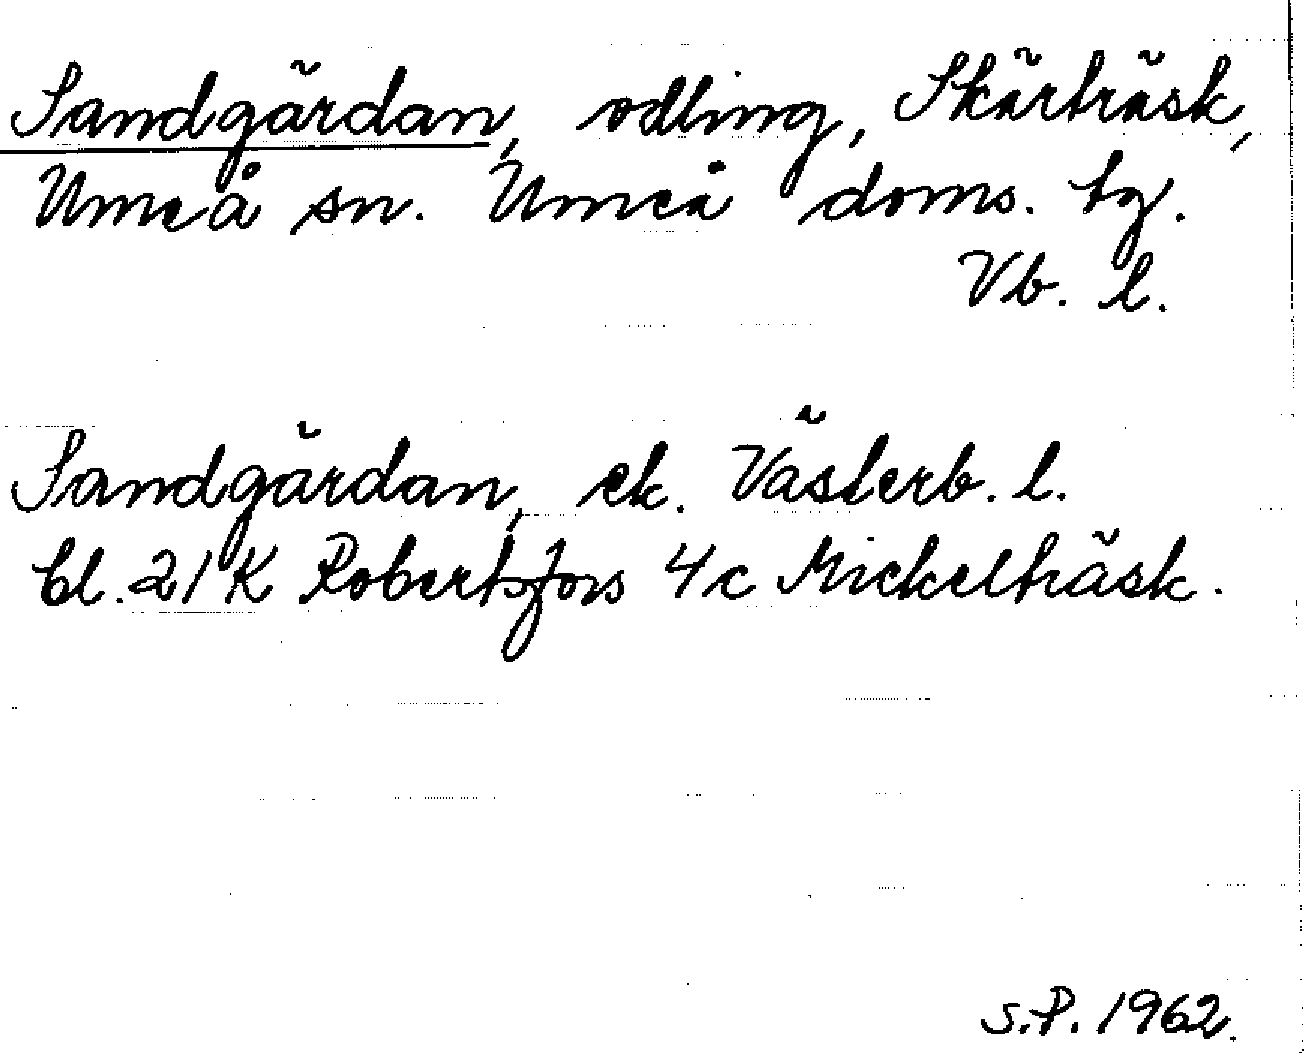 Sandgärdan, odling, Skärträsk,
Umeå sn. Umeå doms. tg.
Vb. l.
Sandgärdan, ek. Västerb. l.
bl. 21K Robertsfors 4c Mickelträsk.
S.P. 1962.